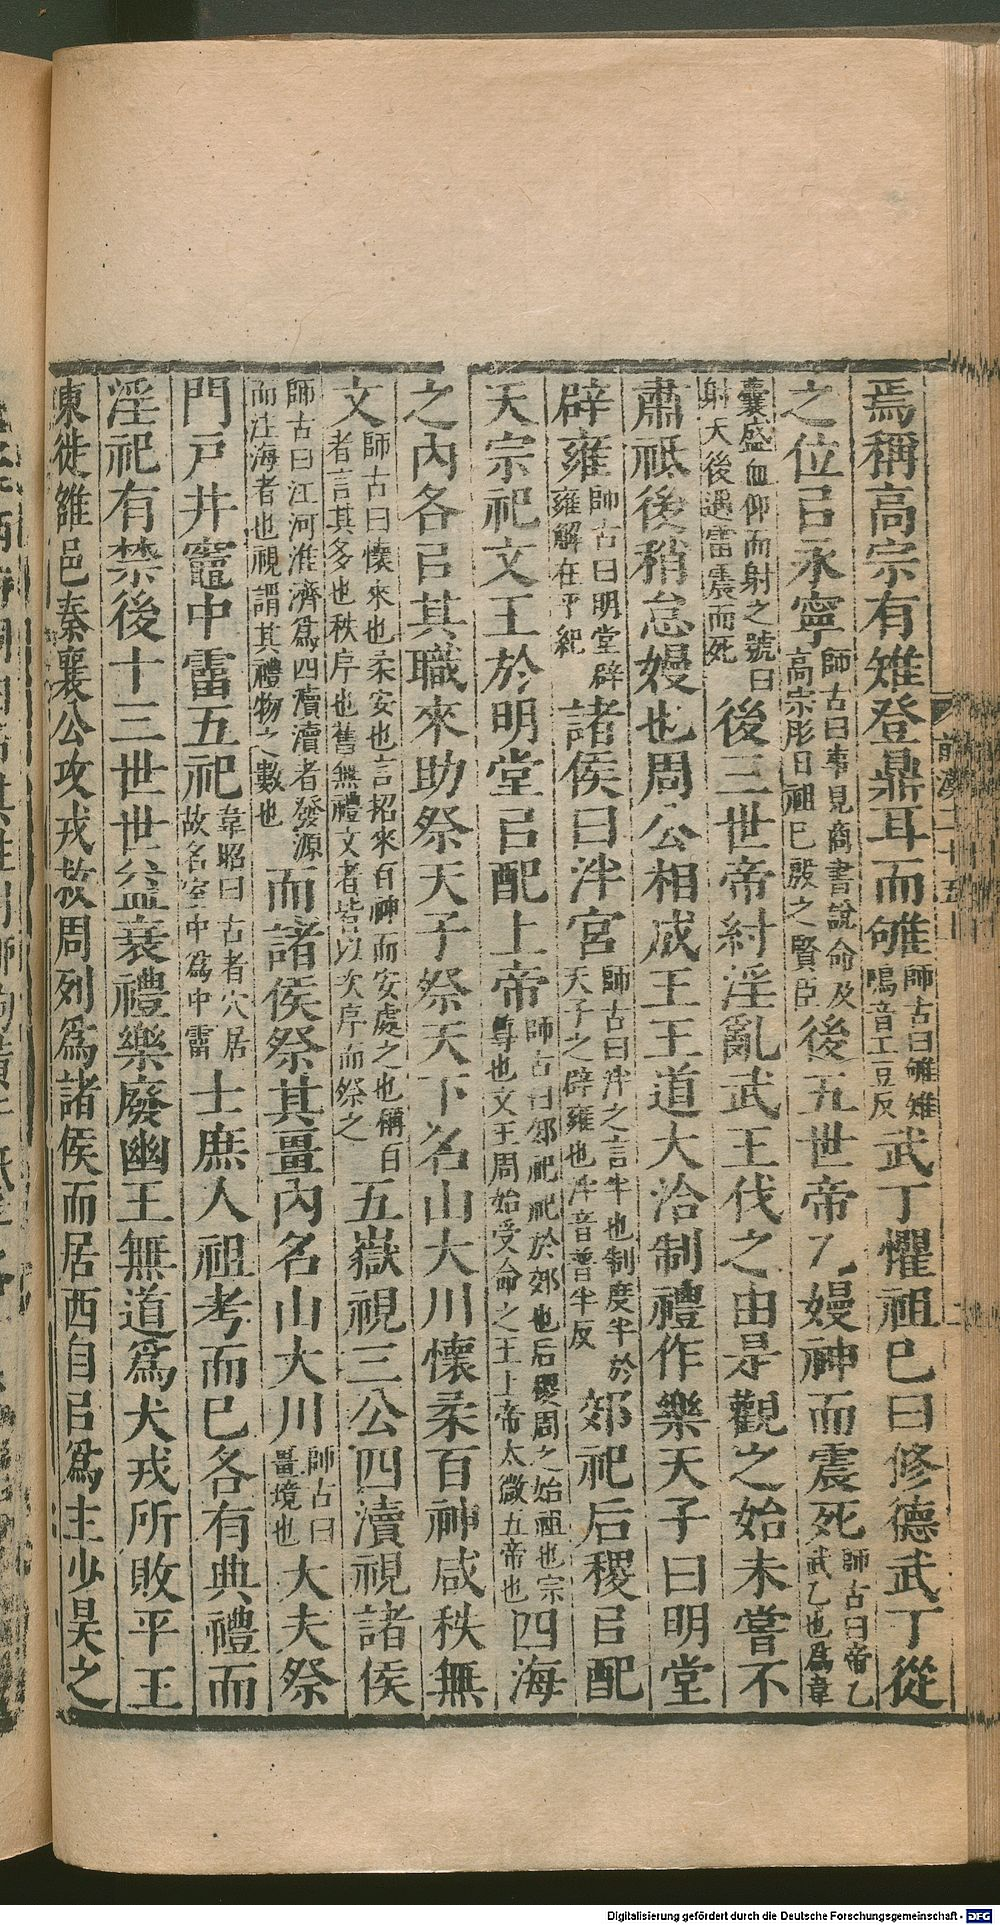 焉稱高宗有雉登鼎耳而雊師古曰雊雉鳴音工豆反武丁懼祖巳曰修德武丁從
之位㠯永寧師古曰事見商書說命及高宗肜日祖巳殷之賢臣後五世帝乙嫚神而震死師古曰帝乙武乙也爲韋
囊盛血仰而射之號曰射天後遇雷震而死後三世帝紂淫亂武王伐之由是觀之始未嘗不
肅祗後稍怠嫚也周公相成王王道大洽制禮作樂天子曰明堂
辟雍師古曰明堂辟雍解在平紀諸侯曰泮宮師古曰泮之言半也制度半於天子之辟雍也泮音普半反郊祀后稷㠯配
天宗祀文王於明堂㠯配上帝師古曰郊祀祀於郊也后稷周之始祖也宗尊也文王周始受命之王上帝太微五帝也四海
之內各㠯其職來助祭天子祭天下名山大川懷柔百神咸秩無
文師古曰懷來也柔安也言招來百神而安處之也稱百者言其多也秩序也舊無禮文者皆以次序而祭之五嶽視三公四瀆視諸侯
師古曰江河淮濟爲四瀆瀆者發源而注海者也視謂其禮物之數也而諸侯祭其畺內名山大川師古曰畺境也大夫祭
門戶井竈中霤五祀韋昭曰古者穴居故名室中爲中霤士庶人祖考而已各有典禮而
淫祀有禁後十三世世益衰禮樂廢幽王無道爲犬戎所敗平王
東徙雒邑秦襄公攻戎救周列爲諸侯而居西自㠯爲主少昊之
前漢二十五
Digitalisierung gefördert durch die Deutsche Forschungsgemeinschaft - DFG